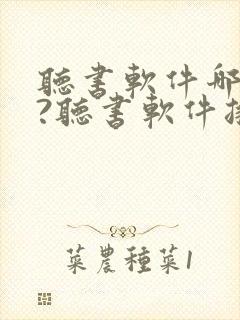 聽書軟件哪
?聽書軟件排
菜農種菜1